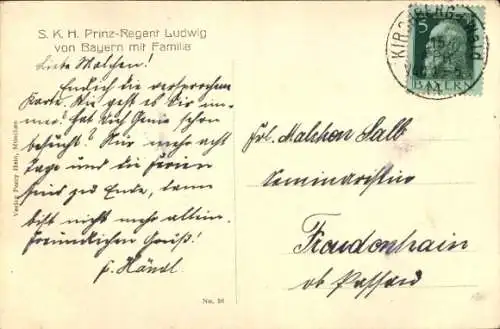 S. K. H. Prinz-Regent Ludwig
von Bayern mit Familie
Liebe Malchen!
Endlich die versprochene
Karte. Wie geht es Dir im-
mer? Hat Dich Genie schon
besucht? Nur mehr acht
Tage und die Ferien
sind zu Ende, dann
bist nicht mehr allein.
Freundlichen Gruß!
F. Händl
Verlag Percy Hein, München
No. 36
5
BAYERN
KIRCHBERG WALD
Frl. Malchen Salb
Seminaristin
Freudenhain
ob Passau